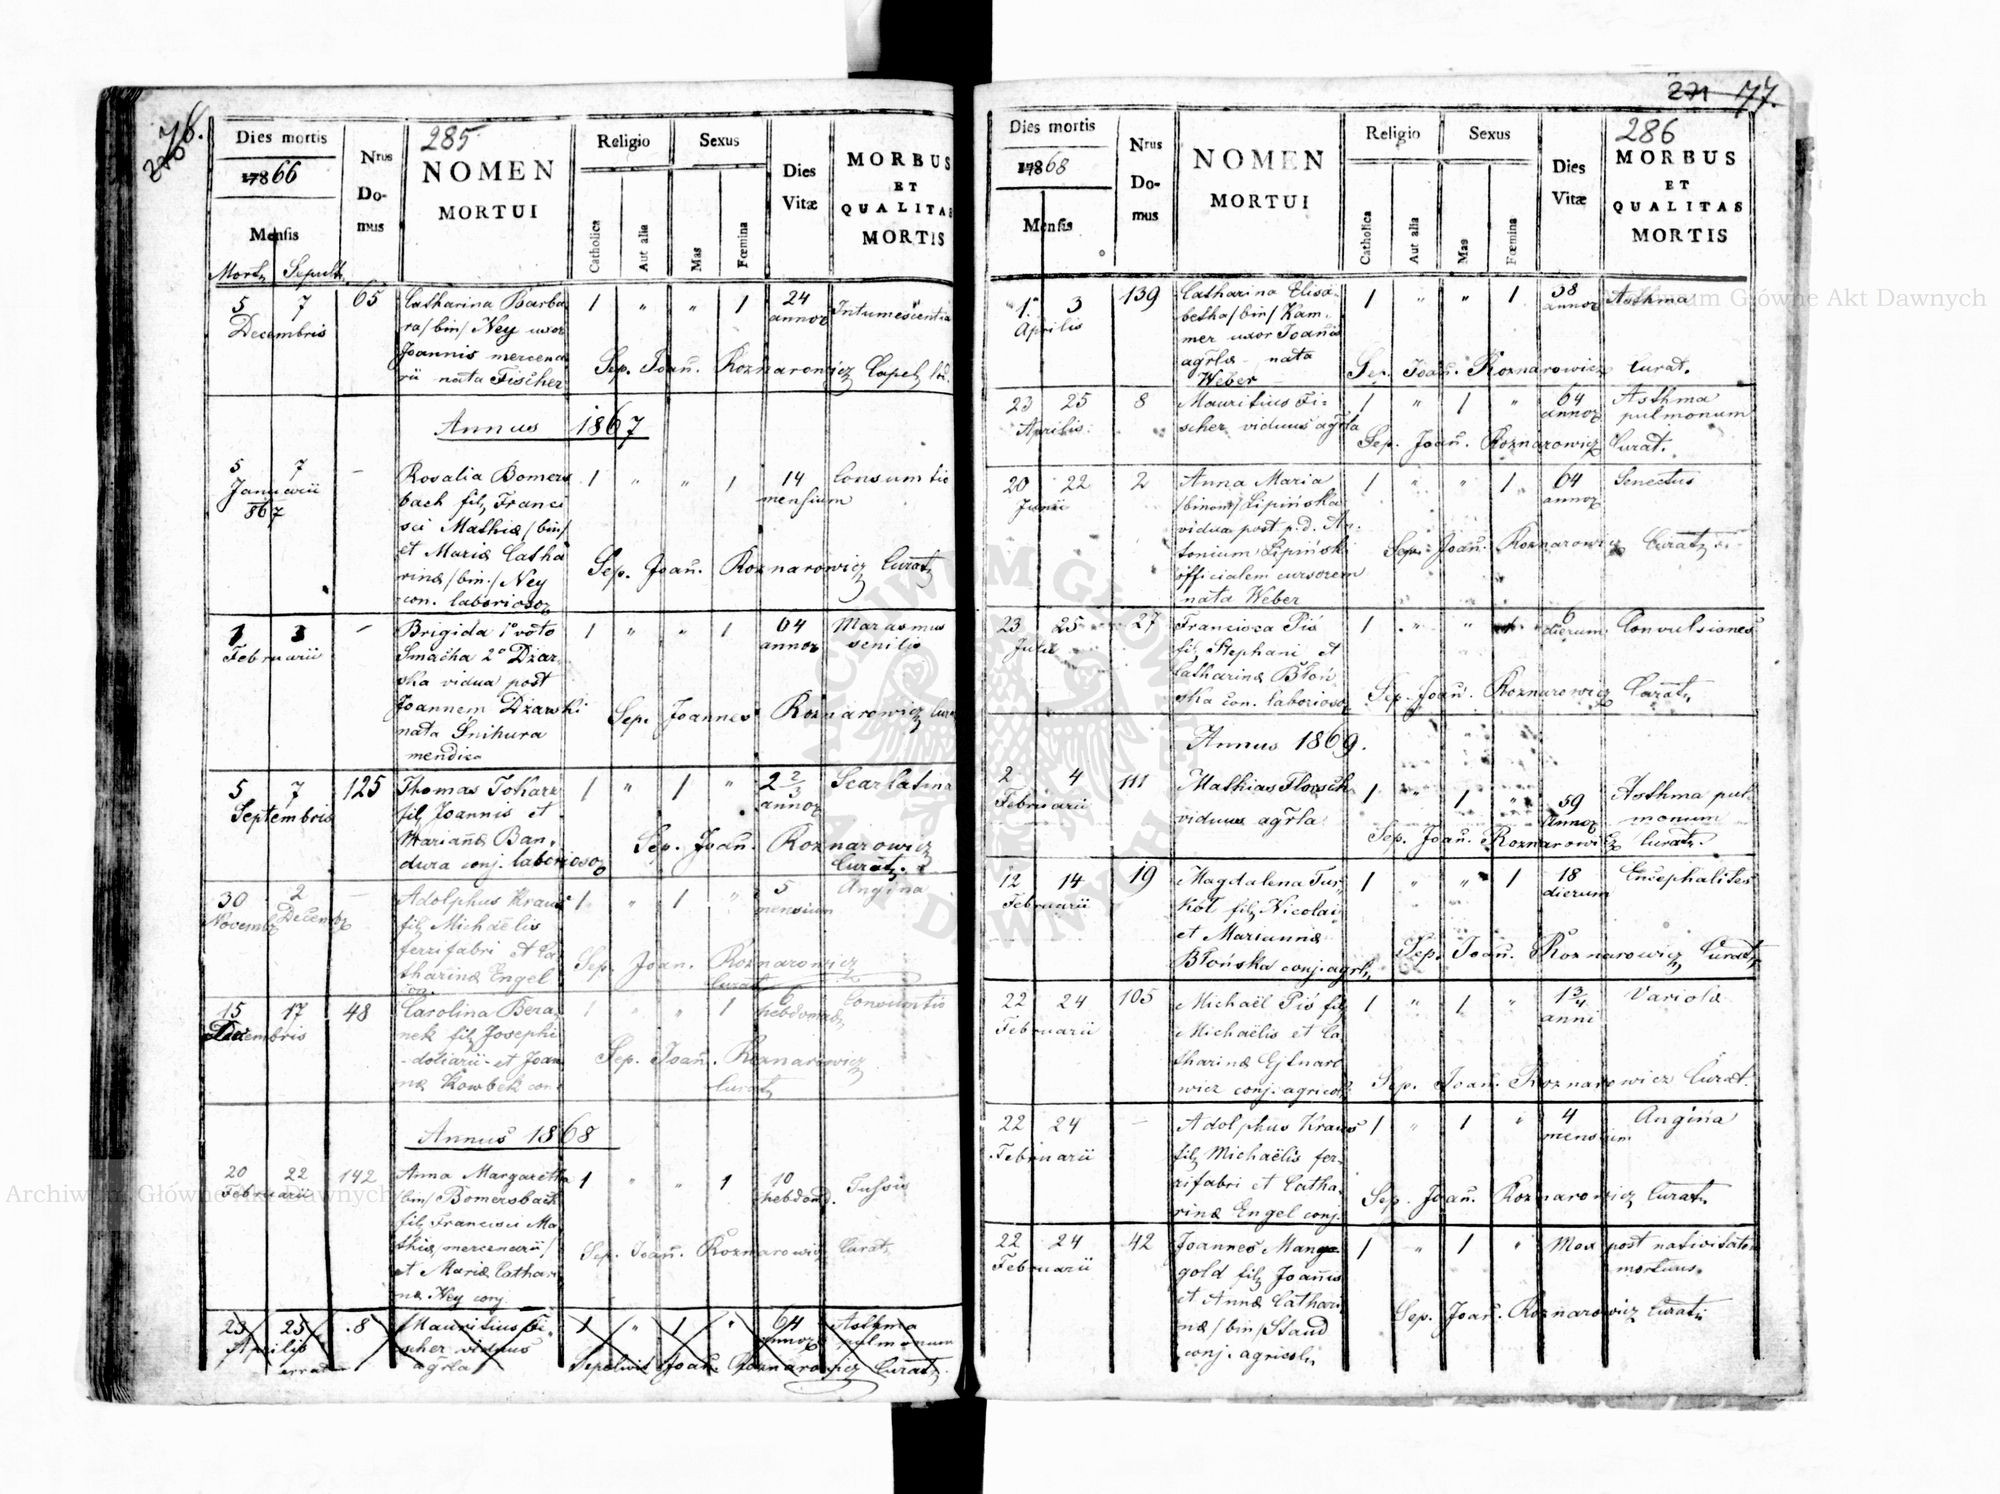 76.
285
Dies mortis
1866
Mensis
Mort. Sepult.
Nrus Domus
NOMEN
MORTUI
Religio
Catholica
Aut alia
Sexus
Mas
Fœmina
Dies Vitæ
MORBUS
ET
QUALITAS
MORTIS
5 7 65 Catharina Barba 1 " " 1 24 Intumescentia
Decembris ra /bin/ Ney uxor annor
Joannis mercena
rii nata Fischer Sep. Joan̄. Roznarowicz Capel. loc.
Annus 1867
5 7 – Rosalia Bomers 1 " " 1 14 Consumtio
Januarii bach fil. Franci mensium
867 sci Mathiæ /bin/
et Mariæ Catha
rinæ /bin./ Ney Sep. Joan̄. Roznarowicz Curat.
con. laborioso
1 3 – Brigida 1º voto 1 " " 1 64 Marasmus
Februarii Smacha 2º Dżar annor senilis
ska vidua post
Joannem Dżarski Sep. Joannes Roznarowicz Cur
nata Snihura
mendica
5 7 125 Thomas Tokarz 1 " 1 " 2 2/3 Scarlatina
Septembris fil. Joannis et annor
Mariañæ Ban- Sep. Joan̄. Roznarowicz
dura conj. laborioso Curat.
30 2 – Adolphus Kraus 1 " 1 " 5 Angina
Novemb. Decemb. fil. Michaëlis mensium
ferrifabri et Ca Sep. Joan. Roznarowicz
tharinæ Engel Curat.
con.
15 17 48 Carolina Bera 1 " " 1 6 Consumtio
Decembris nek fil. Josephi hebdomad.
doliarii et Joan Sep. Joan̄. Roznarowicz
næ Kowbek con. Curat.
Annus 1868
20 22 142 Anna Margaretha 1 " " 1 10 Tussis
Februarii /bin/ Bomersbach hebdomd.
fil. Francisci Ma
thiæ /mercenarii/ Sep. Joan̄. Roznarowicz Curat.
et Mariæ Cathari
næ Ney conj.
23 25 8 Mauritius Fi- 1 " 1 " 64 Asthma
Aprilis scher viduus annor pulmonum
errat agr̄la Sepelivit Joan̄. Roznarowicz Curat.
271 77.
286
Dies mortis
1868
Mensis
Nrus Domus
NOMEN
MORTUI
Religio
Catholica
Aut alia
Sexus
Mas
Fœmina
Dies Vitæ
MORBUS
ET
QUALITAS
MORTIS
1 3 139 Catharina Elisa- 1 " " 1 38 Asthma
Aprilis betha /bin/ Kam- annor
mer uxor Joannis
agr̄læ nata Sep. Joan̄. Roznarowicz Curat.
Weber
23 25 8 Mauritius Fi- 1 " 1 " 64 Asthma
Aprilis scher viduus agr̄la annor pulmonum
Sep. Joan̄. Roznarowicz Curat.
20 22 2 Anna Maria 1 " " 1 64 Senectus
Junii /binom/ Lipińska annor
vidua post p.d. An-
tonium Lipiński Sep. Joan̄. Roznarowicz Curat.
officialem cursorem
nata Weber
23 25 27 Francisca Piś 1 " " 1 6 Convulsiones
Julii fil. Stephani et dierum
Catharinæ Błoń
ska con. laborioso Sep. Joan̄. Roznarowicz Curat.
Annus 1869.
2 4 111 Mathias Florsch 1 " 1 " 59 Asthma pul-
Februarii viduus agr̄la annor monum
Sep. Joan̄. Roznarowicz Curat.
12 14 19 Magdalena Tur- 1 " " 1 18 Encephalites
Februarii kot fil. Nicolai dierum
et Mariannæ
Błońska conj. agrl. Sep. Joan̄. Roznarowicz Curat.
22 24 105 Michaël Piś fil. 1 " 1 " 1 3/4 Variola
Februarii Michaëlis et Ca anni
tharinæ Ejtnaro
wicz conj. agricol. Sep. Joan̄. Roznarowicz Curat.
22 24 – Adolphus Kraus 1 " 1 " 4 Angina
Februarii fil. Michaëlis fer- mensium
rifabri et Catha-
rinæ Engel conj. Sep. Joan̄. Roznarowicz Curat.
22 24 42 Joannes Mange- 1 " 1 " Mox post nativitatem
Februarii gold fil. Joannis mortuus.
et Annæ Cathari
næ /bin/ Staud Sep. Joan̄. Roznarowicz Curat.
conj. agricol.
Archiwum Główne Akt Dawnych
Archiwum Główne Akt Dawnych
ARCHIWUM GŁÓWNE AKT DAWNYCH